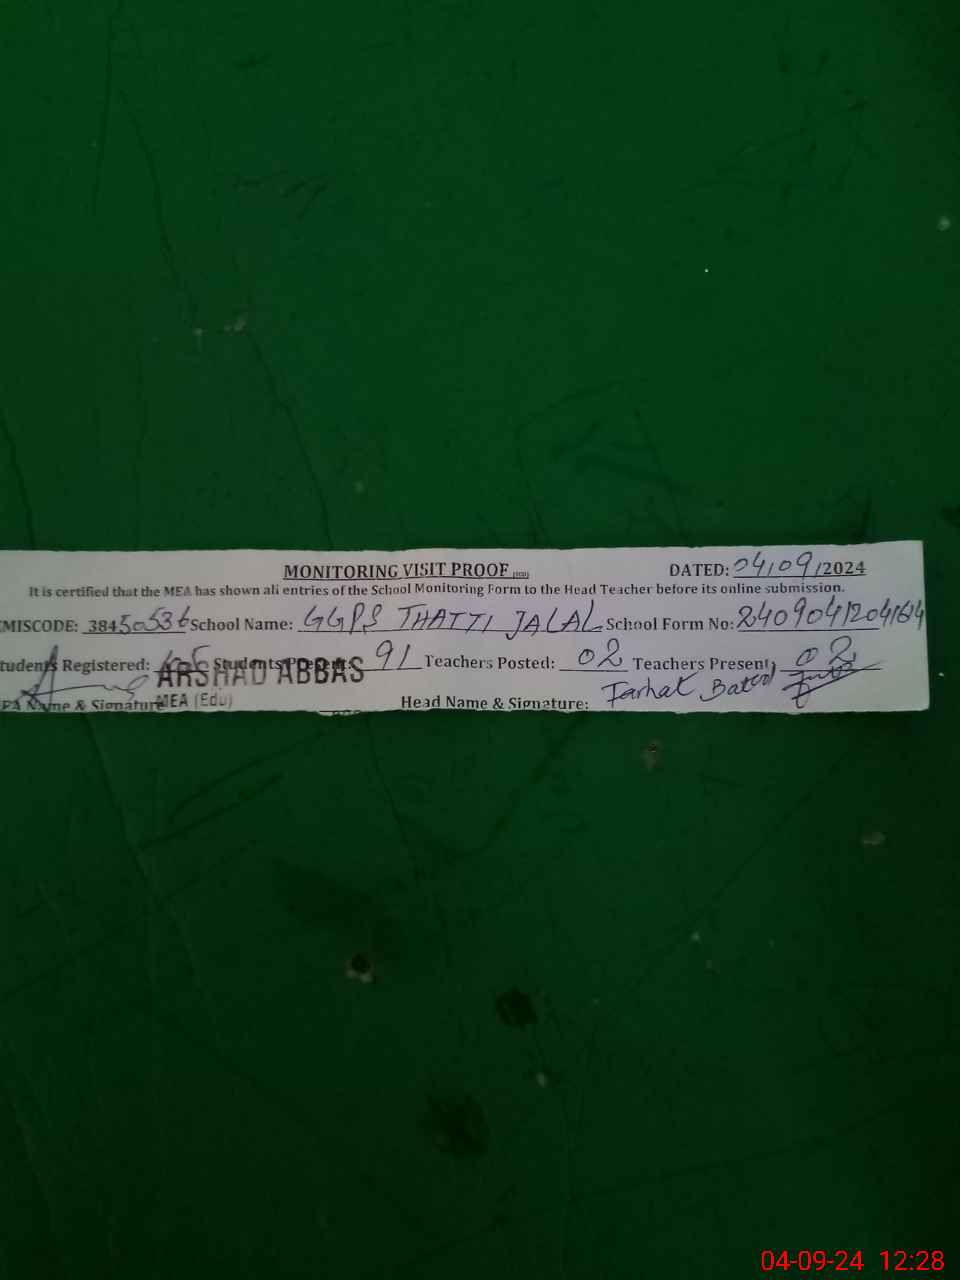 MONITORING VISIT PROOF DATED: 04/09/2024
It is certified that the MEA has shown all entries of the School Monitoring Form to the Head Teacher before its online submission.
EMISCODE: 38450536 School Name: GGPS THATTI JALAL School Form No: 2409041204164
tudents Registered: Students Present: 91 Teachers Posted: 02 Teachers Present, 02
ARSHAD ABBAS
MEA (Edu)
Name & Signature Head Name & Signature: Farhat Batool
04-09-24 12:28